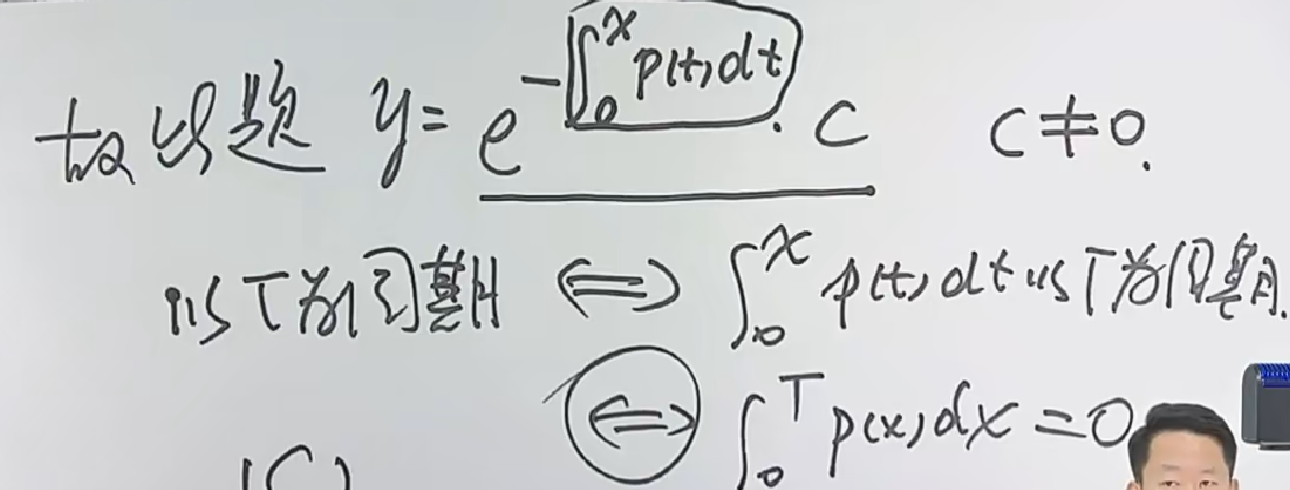 故此题 y = e^{-∫_0^x p(t)dt} · C C≠0.
以T为周期 ⟺ ∫_0^x p(t)dt以T为周期.
⟺ ∫_0^T p(x)dx = 0
(C)